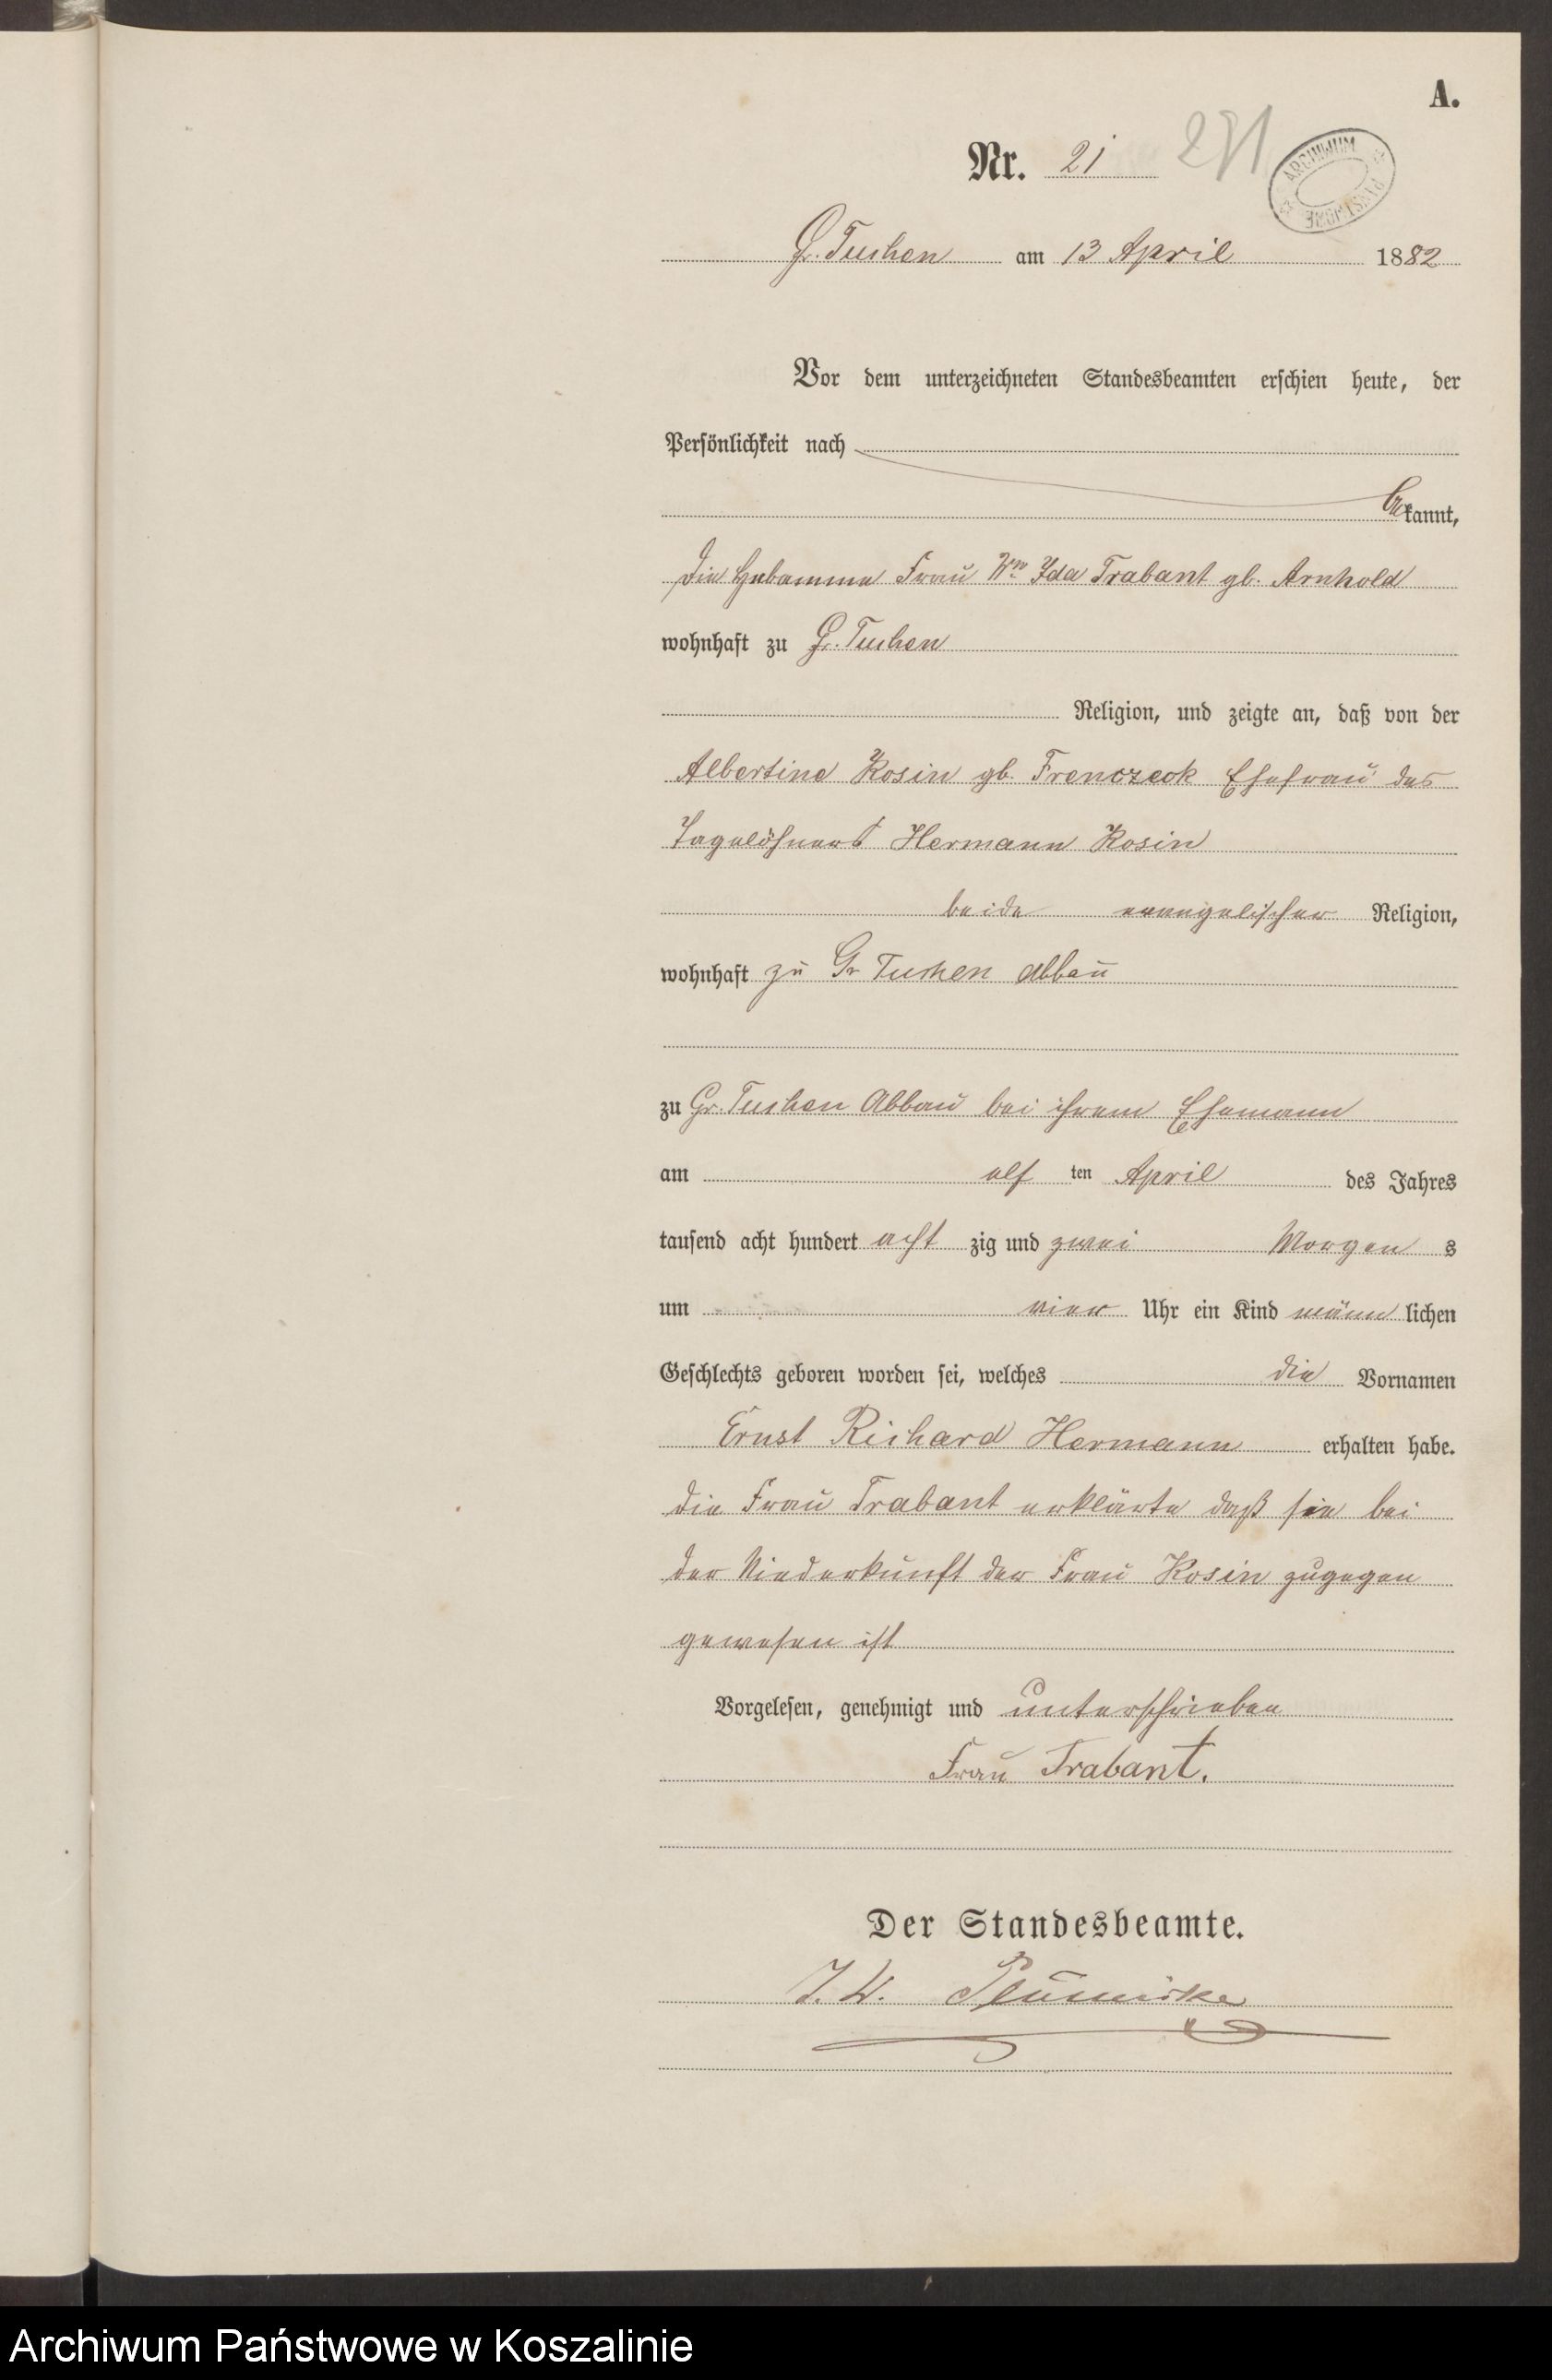 A.
Nr. 21 271
ARCHIWUM PAŃSTWOWE
Gr. Tuchen am 13 April 1882
Vor dem unterzeichneten Standesbeamten erschien heute, der
Persönlichkeit nach
bekannt,
die Hebamme Frau Wwe Ida Trabant gb. Arnhold
wohnhaft zu Gr. Tuchen
Religion, und zeigte an, daß von der
Albertine Rosin gb. Frenczeck Ehefrau des
Tagelöhners Hermann Rosin
beide evangelischer Religion,
wohnhaft zu Gr Tuchen Abbau
zu Gr. Tuchen Abbau bei ihrem Ehemann
am elf ten April des Jahres
tausend acht hundert acht zig und zwei Morgen s
um vier Uhr ein Kind männ lichen
Geschlechts geboren worden sei, welches die Vornamen
Ernst Richard Hermann erhalten habe.
die Frau Trabant erklärte daß sie bei
der Niederkunft der Frau Rosin zugegen
gewesen ist
Vorgelesen, genehmigt und unterschrieben
Frau Trabant.
Der Standesbeamte.
J. V. Plümicke
Archiwum Państwowe w Koszalinie